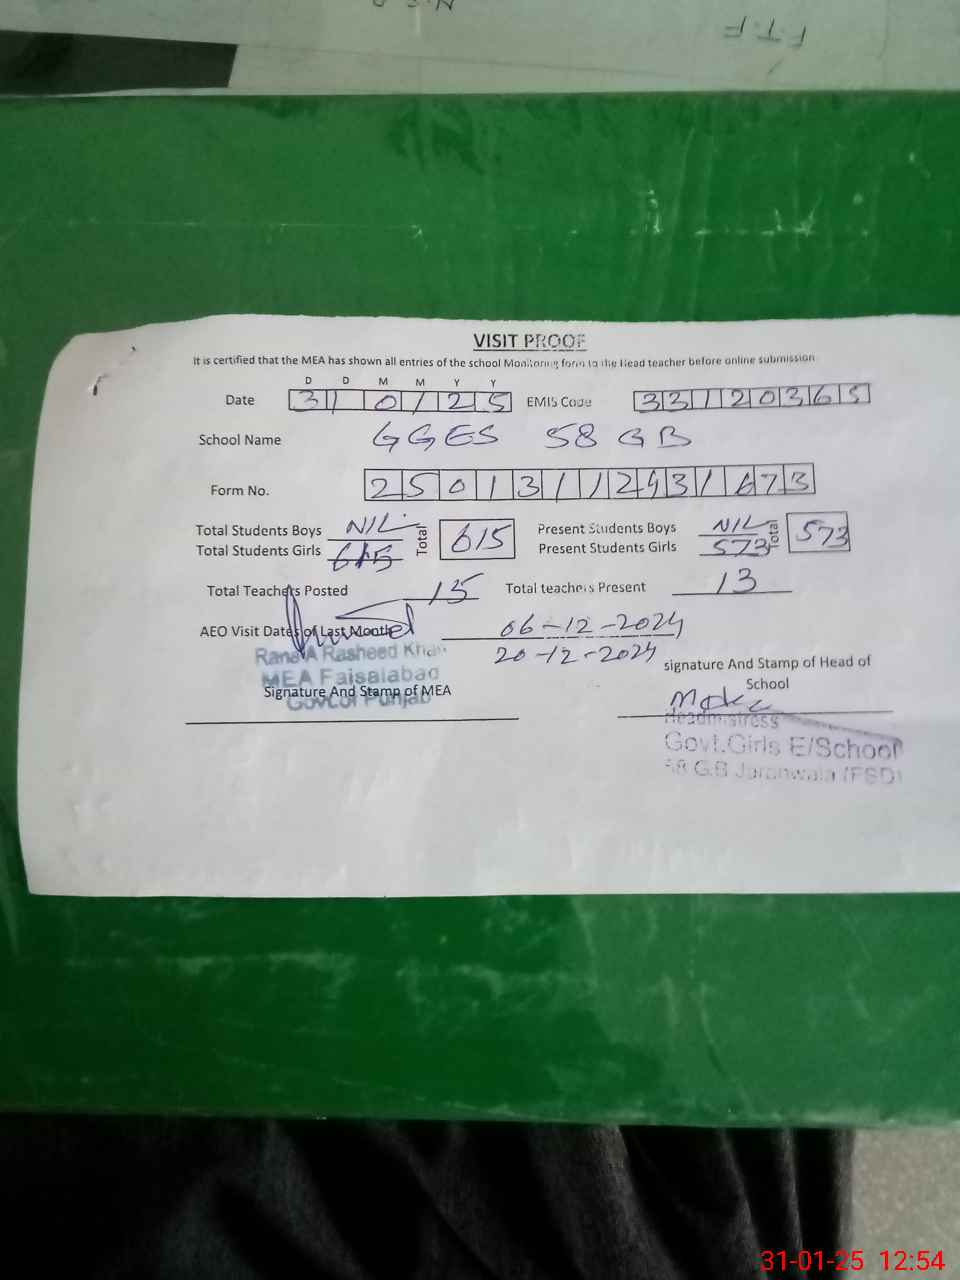 F.T.F
VISIT PROOF
It is certified that the MEA has shown all entries of the school Monitoring form to the Head teacher before online submission
D D M M Y Y
Date 31 01 25 EMIS Code 33120365
School Name GGES 58 GB
Form No. 25013112431673
Total Students Boys NIL Total 615 Present Students Boys NIL Total 573
Total Students Girls 615 Present Students Girls 573
Total Teachers Posted 15 Total teachers Present 13
AEO Visit Dates of Last Month 06-12-2024
20-12-2024
Rana A Rasheed Khan
MEA Faisalabad
Govt.of Punjab
Signature And Stamp of MEA
signature And Stamp of Head of
School
Headmistress
Govt.Girls E/School
58 G.B Jaranwala (FSD)
31-01-25 12:54